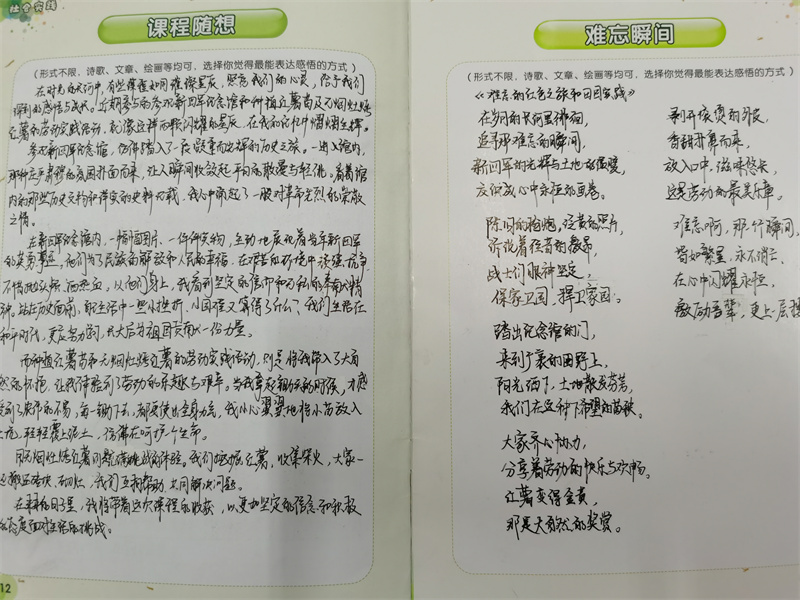 社会实践
课程随想
（形式不限，诗歌、文章、绘画等均可，选择你觉得最能表达感悟的方式）
在时光的长河中，有些课程如同璀璨星辰，照亮我们的心灵，给予我们
深刻的感悟与成长。近期参与的参观新四军纪念馆和种植红薯苗及无烟灶烤
红薯的劳动实践活动，就像这样两颗闪耀的星辰，在我的记忆中熠熠生辉。
参观新四军纪念馆，仿佛踏入了一段厚重而光辉的历史之旅。一进入馆内，
那种庄严肃穆的氛围扑面而来，让人瞬间收敛起平日的散漫与轻浮。看着馆
内的那些历史文物和详实的史料记载，我心中涌起了一股对革命先烈的崇敬
之情。
在新四军纪念馆内，一幅幅图片、一件件实物，生动地展现着当年新四军
的英勇事迹。他们为了民族的解放和人民的幸福，在艰苦的环境中顽强抗争，
不惜抛头颅洒热血，从他们身上，我看到坚定的信仰和无私的奉献精
神。站在历史面前，我生活中一些小挫折、小困难又算得了什么？我们生活在
和平时代，更应努力学习，长大后为祖国贡献一份力量。
而种植红薯苗和无烟灶烤红薯的劳动实践活动，则是将我带入了大自
然的怀抱，让我体验到了劳动的乐趣与艰辛。当我拿起锄头的时候，才感
受到了农作的不易，每一锄下去，都要使出全身力气，我小心翼翼地将小苗放入
土坑，轻轻覆上泥土，仿佛在呵护一个生命。
用无烟灶烤红薯则是挑战的体验。我们挖掘红薯，收集柴火，大家一
起搬砖块、砌灶，我们互相帮助，共同解决问题。
在未来的日子里，我将带着这次课程的收获，以更加坚定的信念和积极
的态度面对生活的挑战。
12
难忘瞬间
（形式不限，诗歌、文章、绘画等均可，选择你觉得最能表达感悟的方式）
《难忘的红色之旅和田园实践》
在岁月的长河里徘徊，
追寻那难忘的瞬间，
新四军的光辉与土地的温暖，
交织成心中永恒的画卷。
陈旧的枪炮，泛黄的照片，
诉说着往昔的艰辛，
战士们眼神坚定，
保家卫国，捍卫家园。
踏出纪念馆的门，
来到广袤的田野上，
阳光洒下，土地散发芬芳，
我们在这种下希望的苗秧。
大家齐心协力，
分享着劳动的快乐与欢畅。
红薯变得金黄，
那是大自然的奖赏。
剥开滚烫的外皮，
香甜扑鼻而来，
放入口中，滋味悠长，
这是劳动的最美乐章。
难忘啊，那个瞬间，
宛如繁星，永不消亡，
在心中闪耀永恒，
激励吾辈，更上一层楼